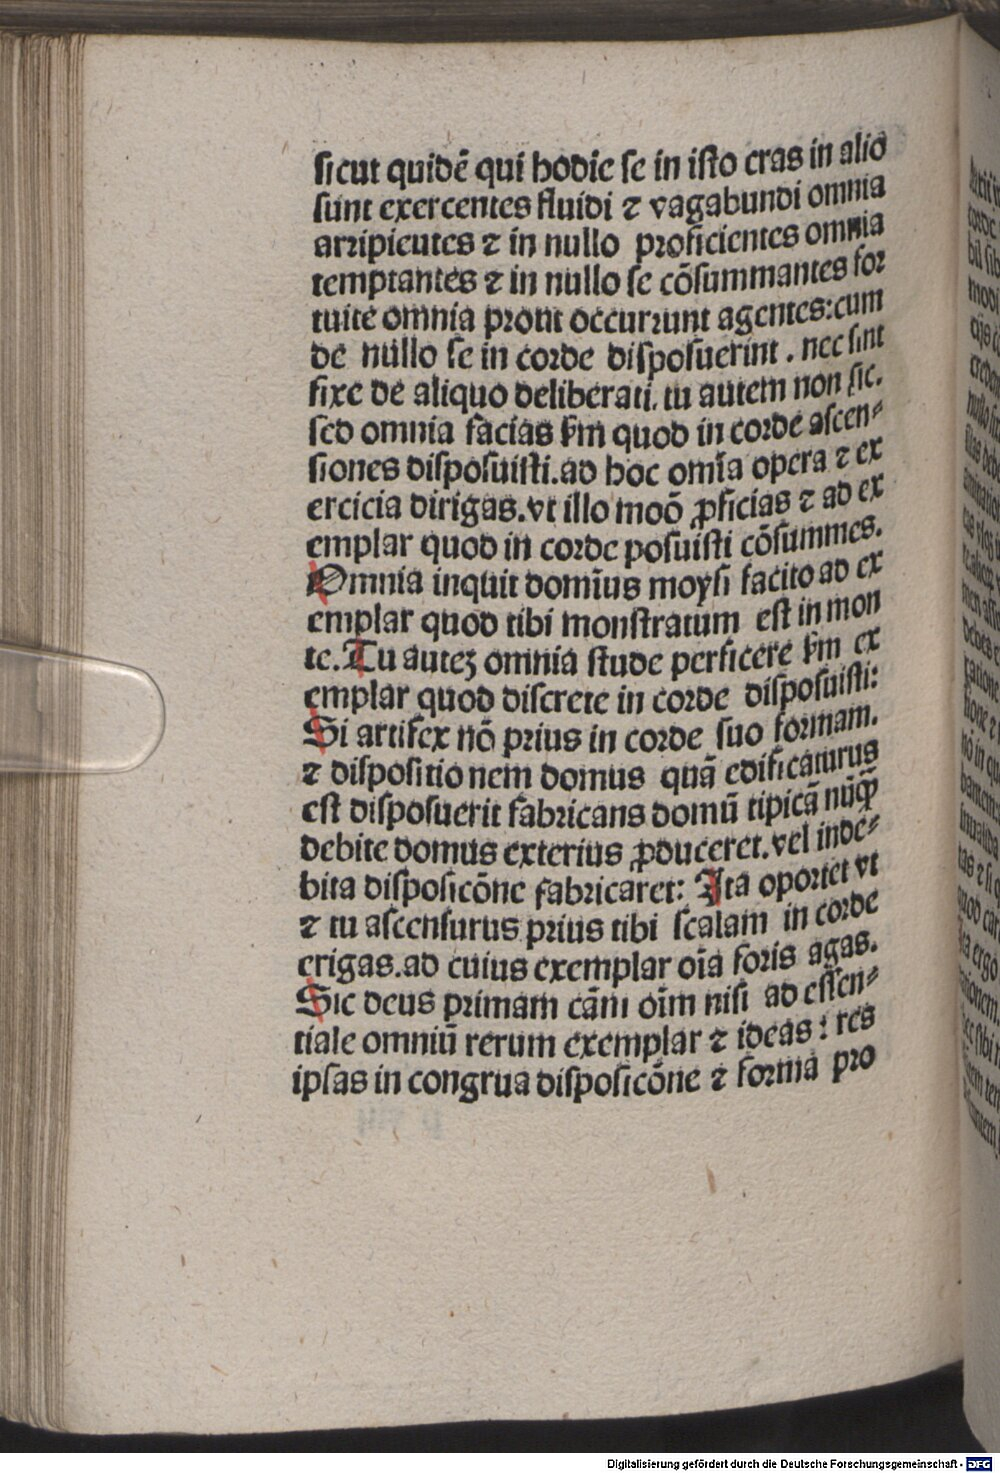 sicut quidē qui hodie se in isto cras in alio
sunt exercentes fluidi ⁊ vagabundi omnia
arripieutes ⁊ in nullo proficientes omnia
temptantes ⁊ in nullo se cōsummantes for
tuite omnia prout occurrunt agentes: cum
de nullo se in corde disposuerint . nec sint
fixe de aliquo deliberati. tu autem non sic.
sed omnia facias ẜm quod in corde ascen⸗
siones disposuisti. ad hoc om̄ia opera ⁊ ex
ercicia dirigas. vt illo moō ꝓficias ⁊ ad ex
emplar quod in corde posuisti cōsummes.
Omnia inquit domīus moysi facito ad ex
emplar quod tibi monstratum est in mon
te. Tu autez omnia stude perficere ẜm ex
emplar quod discrete in corde disposuisti:
Si artifex nō prius in corde suo formam.
⁊ dispositionem domus quā edificaturus
est disposuerit fabricans domū tipicā nūqꝫ
debite domus exterius ꝓduceret. vel inde⸗
bita disposicōne fabricaret: Ita oportet vt
⁊ tu ascensurus prius tibi scalam in corde
erigas. ad cuius exemplar oīa foris agas.
Sic deus primam cām oīm nisi ad essen⸗
tiale omniū rerum exemplar ⁊ ideas : res
ipsas in congrua disposicōne ⁊ forma pro
Digitalisierung gefördert durch die Deutsche Forschungsgemeinschaft - DFG